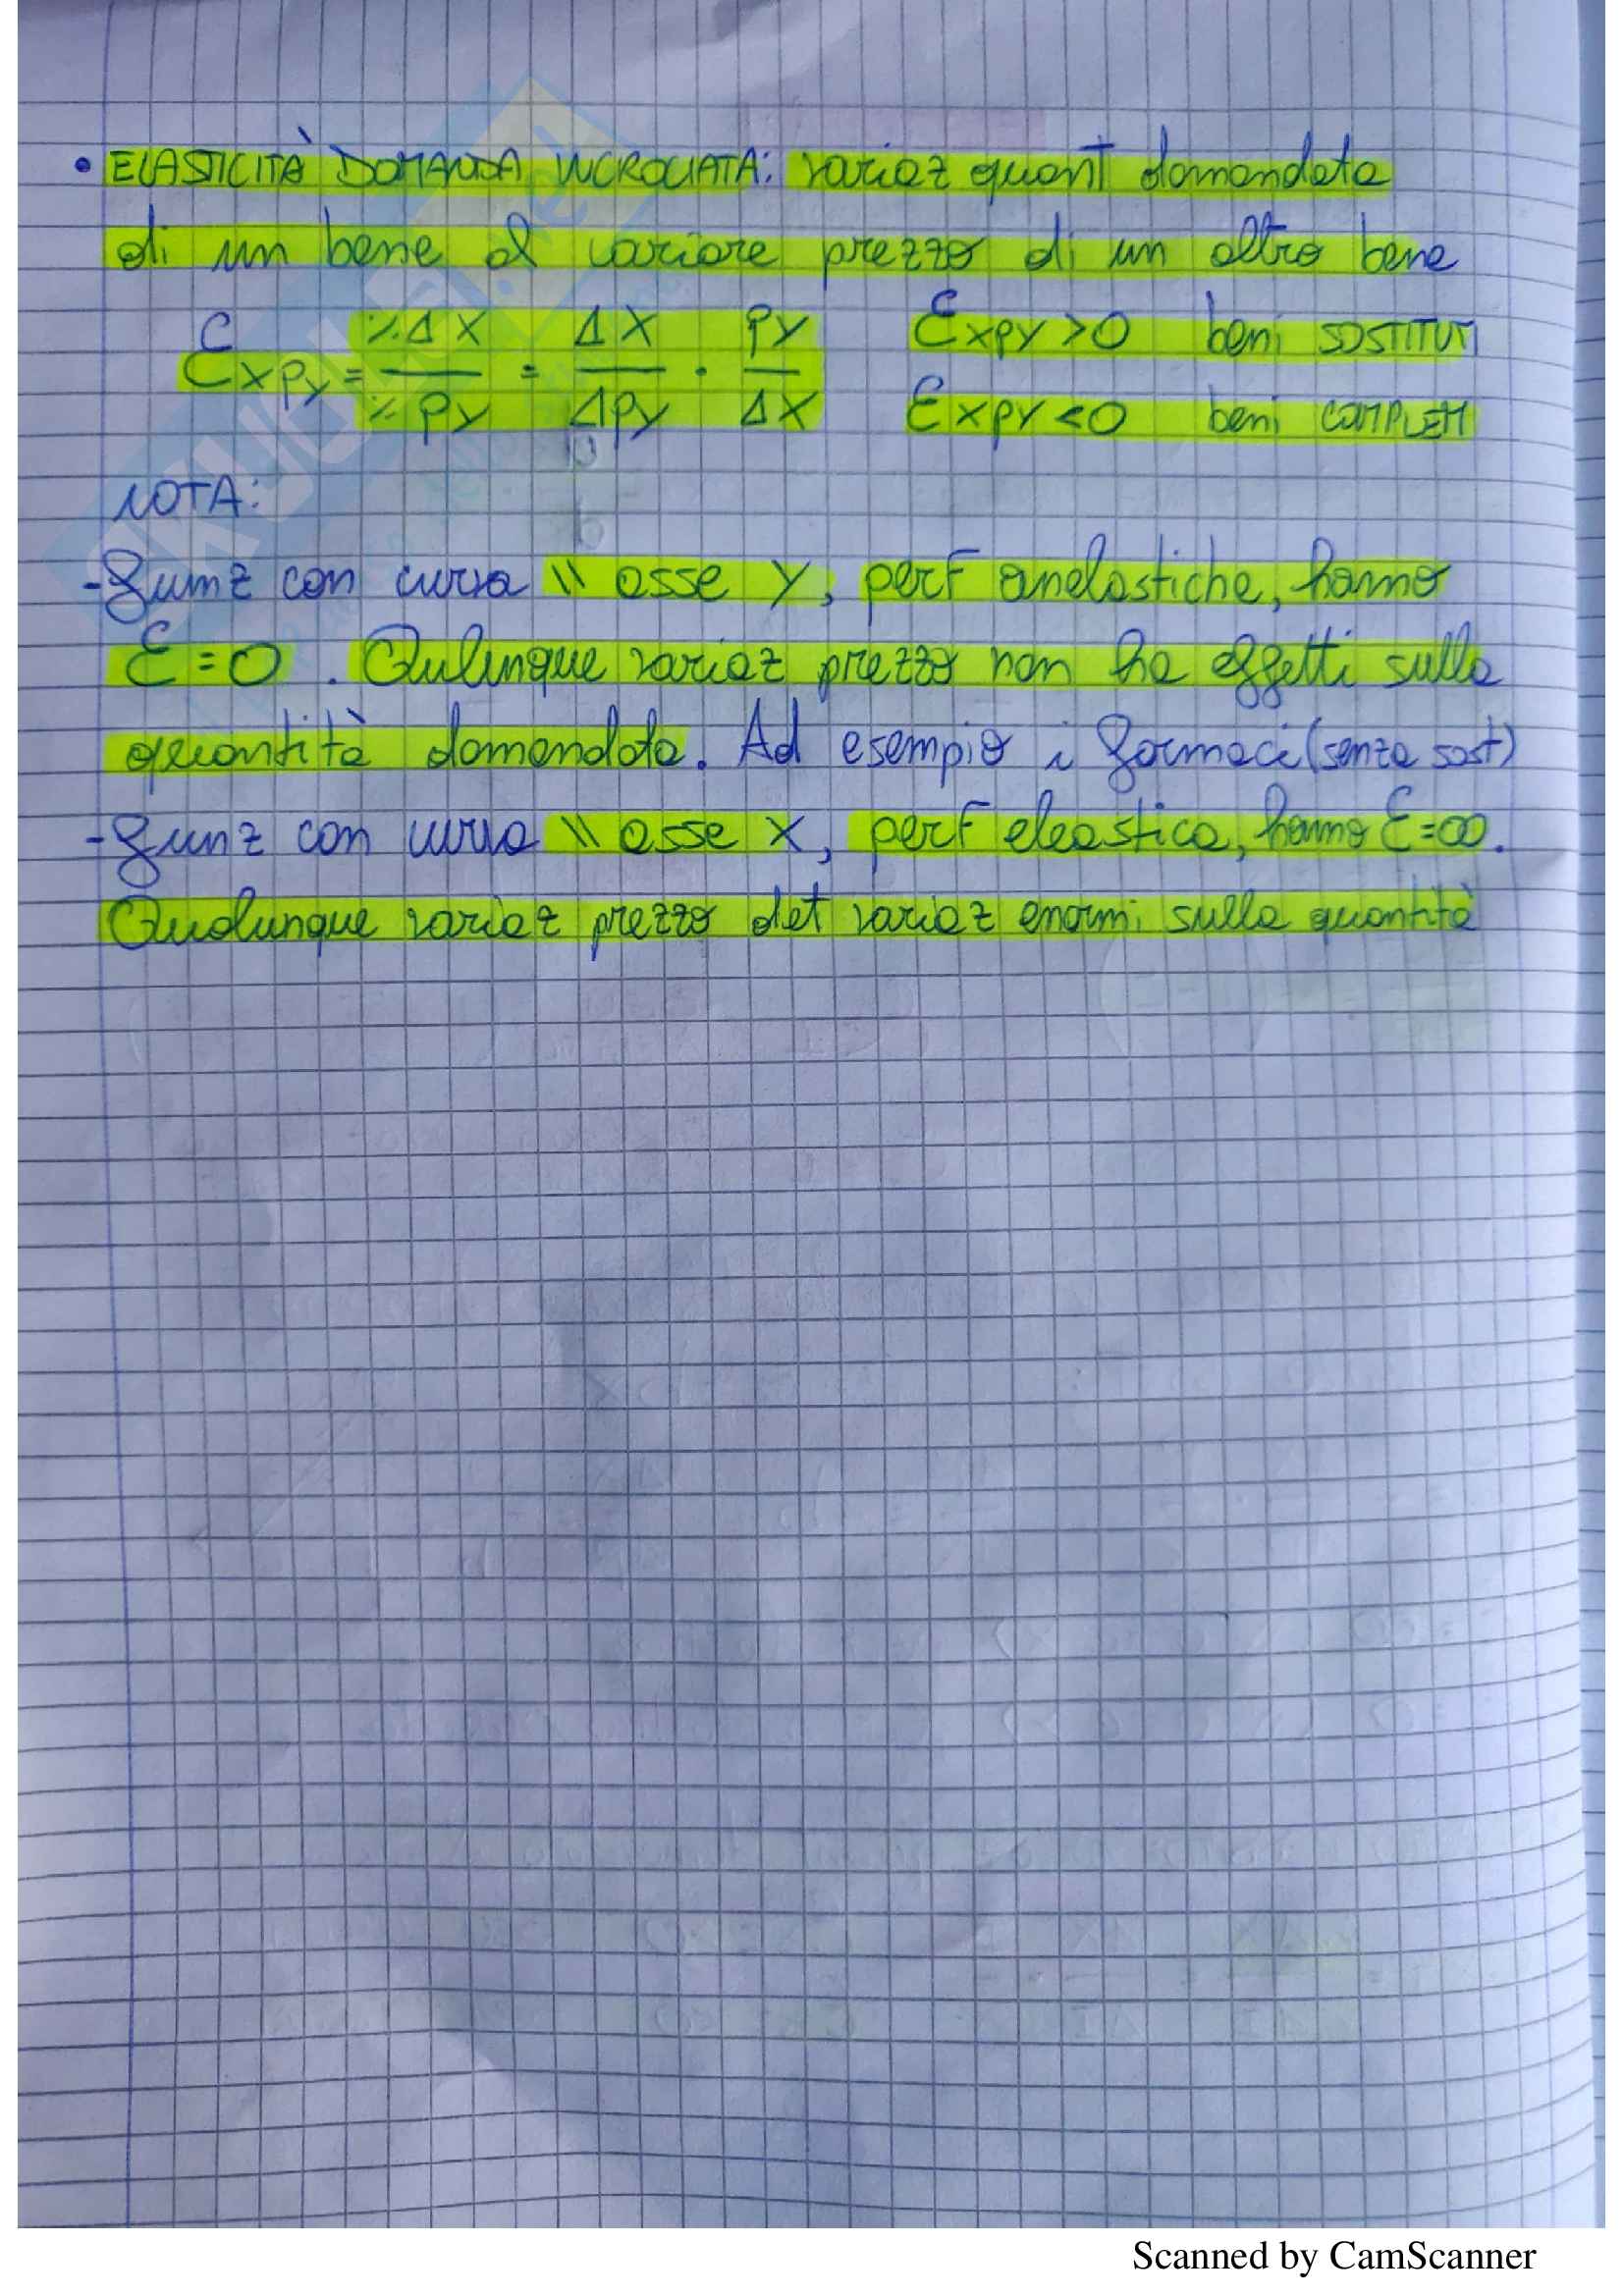 • ELASTICITÀ DOMANDA INCROCIATA: variaz quant domandata
di un bene al variare prezzo di un altro bene
Ɛxpy = %ΔX / %py = ΔX / Δpy · py / ΔX
Ɛxpy > 0 beni SOSTITUTI
Ɛxpy < 0 beni COMPLEM
NOTA:
- funz con curva \\ asse y, perf anelastiche, hanno
Ɛ = 0. Qulunque variaz prezzo non ha effetti sulla
quantità domandata. Ad esempio i farmaci (senza sost)
- funz con curva \\ asse x, perf eleastica, hanno Ɛ = ∞.
Qualunque variaz prezzo det variaz enormi sulla quantità
Scanned by CamScanner